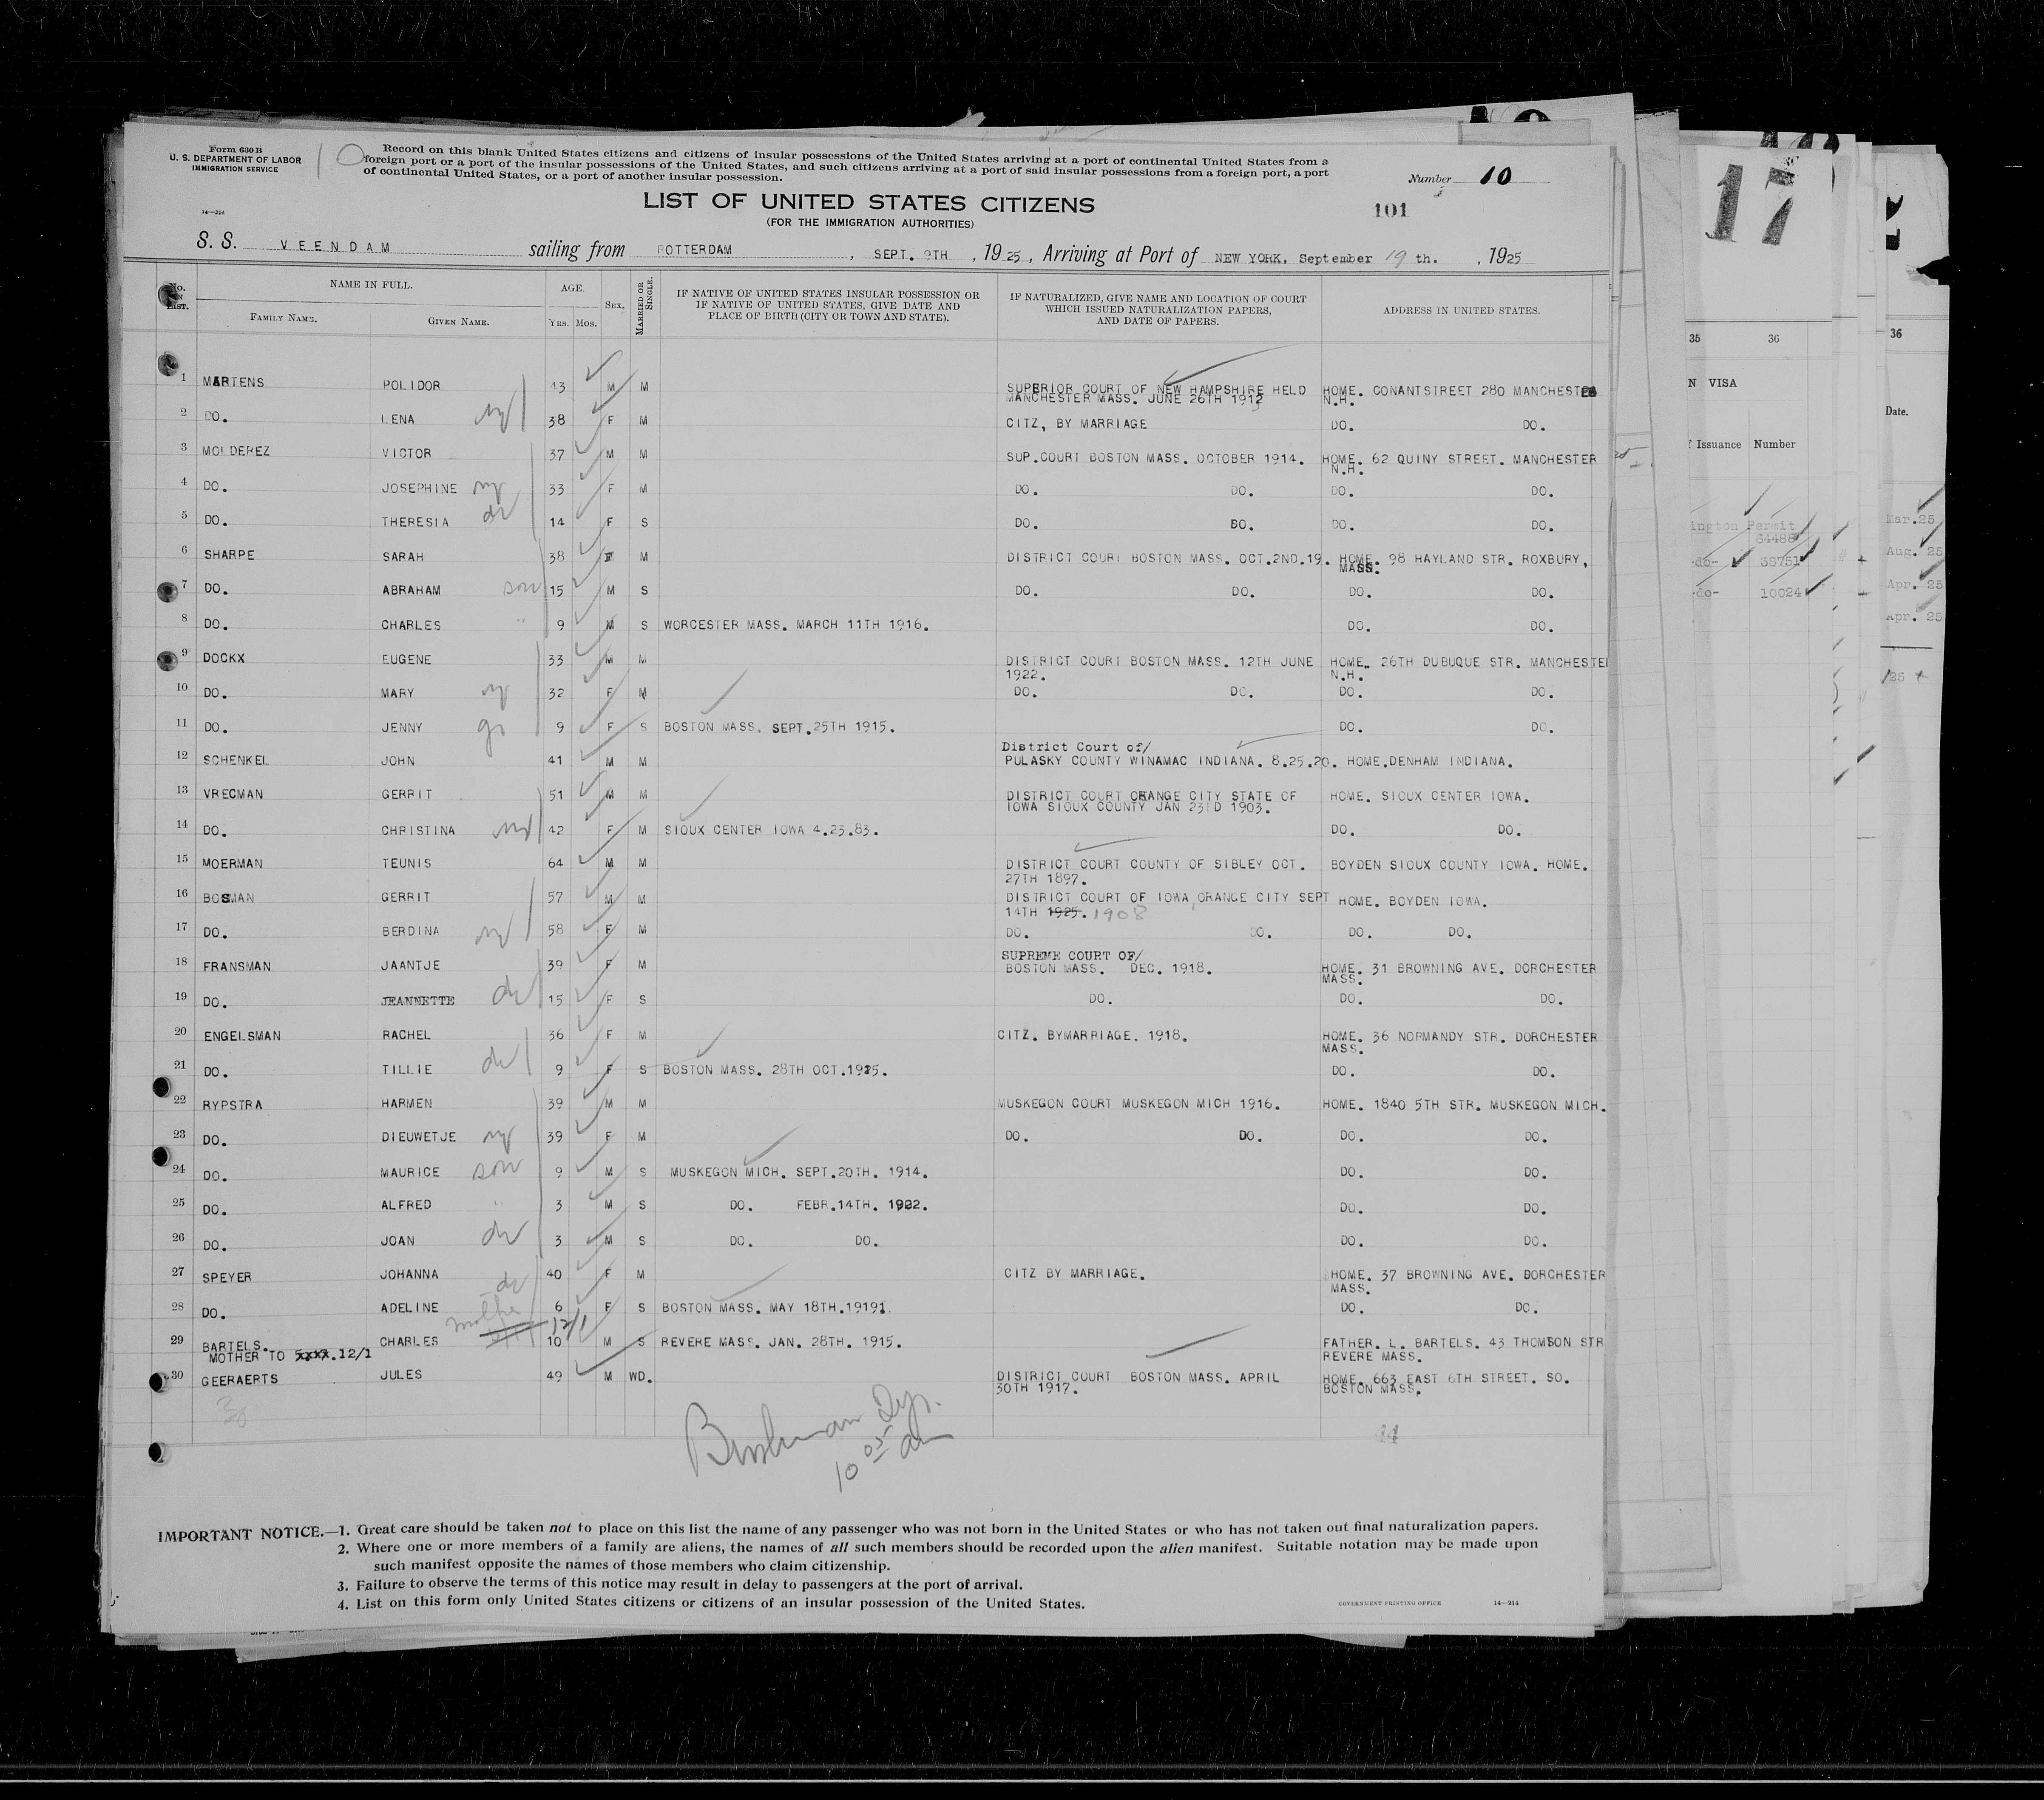 Form 630 B
U. S. DEPARTMENT OF LABOR
IMMIGRATION SERVICE
10
Record on this blank United States citizens and citizens of insular possessions of the United States arriving at a port of continental United States from a
foreign port or a port of the insular possessions of the United States, and such citizens arriving at a port of said insular possessions from a foreign port, a port
of continental United States, or a port of another insular possession.
Number 10
14—214
LIST OF UNITED STATES CITIZENS
(FOR THE IMMIGRATION AUTHORITIES)
101
S. S. VEENDAM sailing from ROTTERDAM, SEPT. 9TH, 1925, Arriving at Port of NEW YORK, September 19 th., 1925
No. on List. NAME IN FULL. AGE. Sex. Married or Single. IF NATIVE OF UNITED STATES INSULAR POSSESSION OR IF NATIVE OF UNITED STATES, GIVE DATE AND PLACE OF BIRTH (CITY OR TOWN AND STATE). IF NATURALIZED, GIVE NAME AND LOCATION OF COURT WHICH ISSUED NATURALIZATION PAPERS, AND DATE OF PAPERS. ADDRESS IN UNITED STATES.
Family Name. Given Name. Yrs. Mos.
1 MARTENS POLIDOR 43 M M SUPERIOR COURT OF NEW HAMPSHIRE HELD HOME. CONANTSTREET 280 MANCHESTER
MANCHESTER MASS. JUNE 26TH 1913 N.H.
2 DO. LENA 38 F M CITZ, BY MARRIAGE DO. DO.
3 MOLDEREZ VICTOR 37 M M SUP.COURT BOSTON MASS. OCTOBER 1914. HOME. 62 QUINY STREET. MANCHESTER
N.H.
4 DO. JOSEPHINE 33 F M DO. DO. DO. DO.
5 DO. THERESIA 14 F S DO. DO. DO. DO.
6 SHARPE SARAH 38 F M DISTRICT COURT BOSTON MASS. OCT.2ND.19. HOME. 98 HAYLAND STR. ROXBURY,
MASS.
7 DO. ABRAHAM son 15 M S DO. DO. DO. DO.
8 DO. CHARLES " 9 M S WORCESTER MASS. MARCH 11TH 1916. DO. DO.
9 DOCKX EUGENE 33 M M DISTRICT COURT BOSTON MASS. 12TH JUNE HOME. 26TH DUBUQUE STR. MANCHESTER
1922. N.H.
10 DO. MARY 32 F M DO. DO. DO. DO.
11 DO. JENNY 9 F S BOSTON MASS. SEPT.25TH 1915. DO. DO.
District Court of/
12 SCHENKEL JOHN 41 M M PULASKY COUNTY WINAMAC INDIANA. 8.25.20. HOME.DENHAM INDIANA.
13 VREGMAN GERRIT 51 M M DISTRICT COURT ORANGE CITY STATE OF HOME. SIOUX CENTER IOWA.
IOWA SIOUX COUNTY JAN 23RD 1903.
14 DO. CHRISTINA 42 F M SIOUX CENTER IOWA 4.23.83. DO. DO.
15 MOERMAN TEUNIS 64 M M DISTRICT COURT COUNTY OF SIBLEY OCT. BOYDEN SIOUX COUNTY IOWA. HOME.
27TH 1897.
16 BOSMAN GERRIT 57 M M DISTRICT COURT OF IOWA ORANGE CITY SEPT HOME. BOYDEN IOWA.
14TH 1925. 1908
17 DO. BERDINA 58 F M DO. DO. DO. DO.
SUPREME COURT OF/
18 FRANSMAN JAANTJE 39 F M BOSTON MASS. DEC. 1918. HOME. 31 BROWNING AVE. DORCHESTER
MASS.
19 DO. JEANNETTE 15 F S DO. DO. DO.
20 ENGELSMAN RACHEL 36 F M CITZ. BYMARRIAGE. 1918. HOME. 36 NORMANDY STR. DORCHESTER
MASS.
21 DO. TILLIE 9 F S BOSTON MASS. 28TH OCT.1915. DO. DO.
22 RYPSTRA HARMEN 39 M M MUSKEGON COURT MUSKEGON MICH 1916. HOME. 1840 5TH STR. MUSKEGON MICH.
23 DO. DIEUWETJE 39 F M DO. DO. DO. DO.
24 DO. MAURICE son 9 M S MUSKEGON MICH. SEPT.20TH. 1914. DO. DO.
25 DO. ALFRED " 3 M S DO. FEBR.14TH. 1922. DO. DO.
26 DO. JOAN 3 M S DO. DO. DO. DO.
27 SPEYER JOHANNA 40 F M CITZ BY MARRIAGE. HOME. 37 BROWNING AVE. DORCHESTER
MASS.
28 DO. ADELINE 6 F S BOSTON MASS. MAY 18TH.1919. DO. DO.
12/1
29 BARTELS. CHARLES 10 M S REVERE MASS. JAN. 28TH. 1915. FATHER. L. BARTELS. 43 THOMSON STR
MOTHER TO 12/1 REVERE MASS.
30 GEERAERTS JULES 49 M WD. DISTRICT COURT BOSTON MASS. APRIL HOME. 663 EAST 6TH STREET. SO.
30TH 1917. BOSTON MASS.
44
10 05 am
IMPORTANT NOTICE.—1. Great care should be taken not to place on this list the name of any passenger who was not born in the United States or who has not taken out final naturalization papers.
2. Where one or more members of a family are aliens, the names of all such members should be recorded upon the alien manifest. Suitable notation may be made upon
such manifest opposite the names of those members who claim citizenship.
3. Failure to observe the terms of this notice may result in delay to passengers at the port of arrival.
4. List on this form only United States citizens or citizens of an insular possession of the United States.
GOVERNMENT PRINTING OFFICE 14—214
17
35 36
N VISA
Issuance Number
ington Permit
64488
-do- 38751
-do- 10024
36
Date.
Mar.25
Aug. 25
Apr. 25
Apr. 25